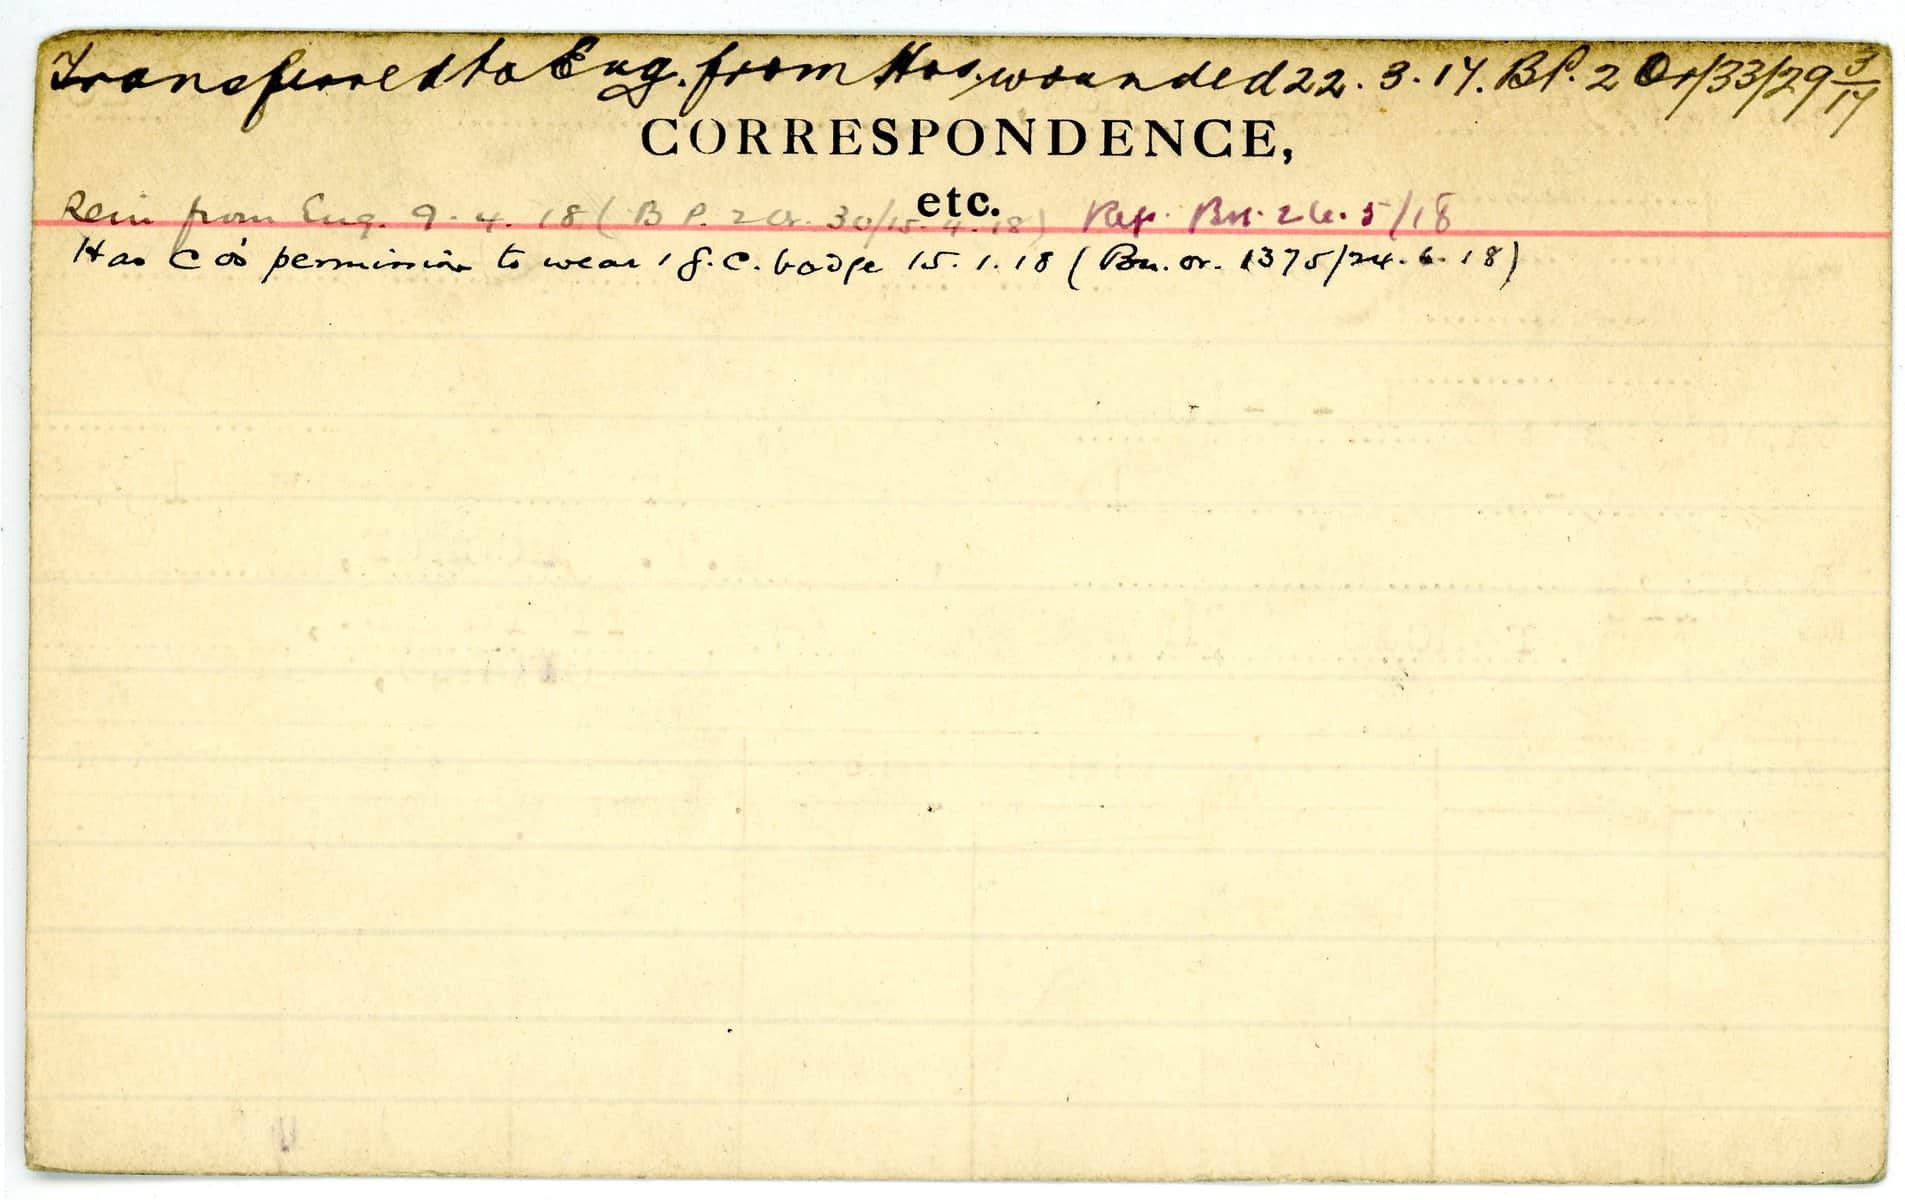 Transferred to Eng. from Hos. wounded 22. 3. 17. BP. 2 Or/33/29 3/17
CORRESPONDENCE,
etc.
Rein from Eng. 9. 4. 18 (B P. 2 Or. 30/15. 4. 18) Rep. Bn. 26. 5/18
Has C O's permission to wear 1 G. C. badge 15. 1. 18 (Bn. or. 1375/24. 6. 18)